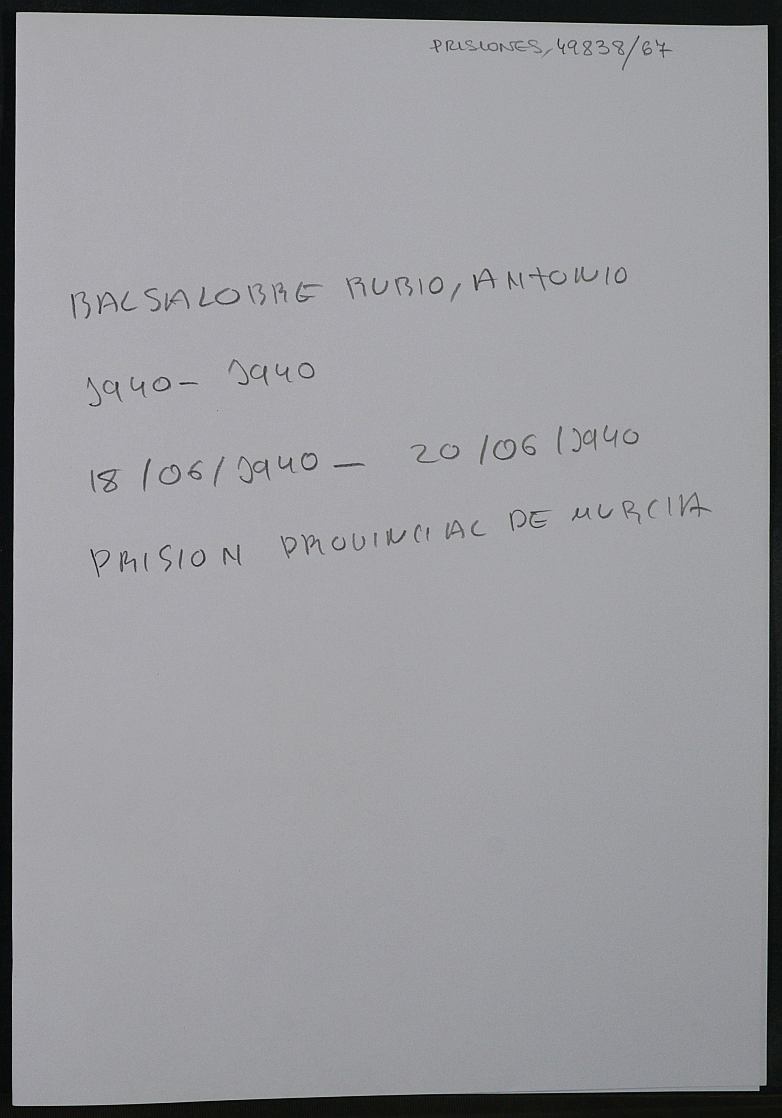 PRISIONES, 49838/67
BALSALOBRE RUBIO, ANTONIO
1940 - 1940
18/06/1940 - 20/06/1940
PRISION PROVINCIAL DE MURCIA